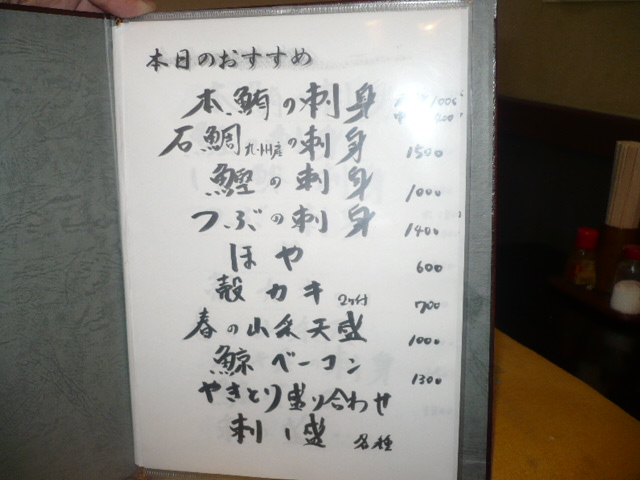 本日のおすすめ
本鮪の刺身
石鯛九州産の刺身 1500
鰹の刺身 1000
つぶの刺身 1400
ほや 600
殻カキ 2ヶ付 700
春の山菜天盛 1000
鯨ベーコン 1300
やきとり盛り合わせ
刺し盛 各種